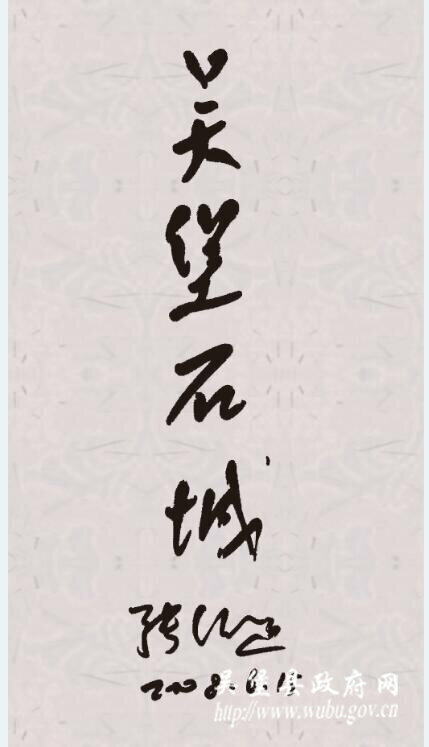 吴堡石城
吴堡县政府网
http://www.wubu.gov.cn